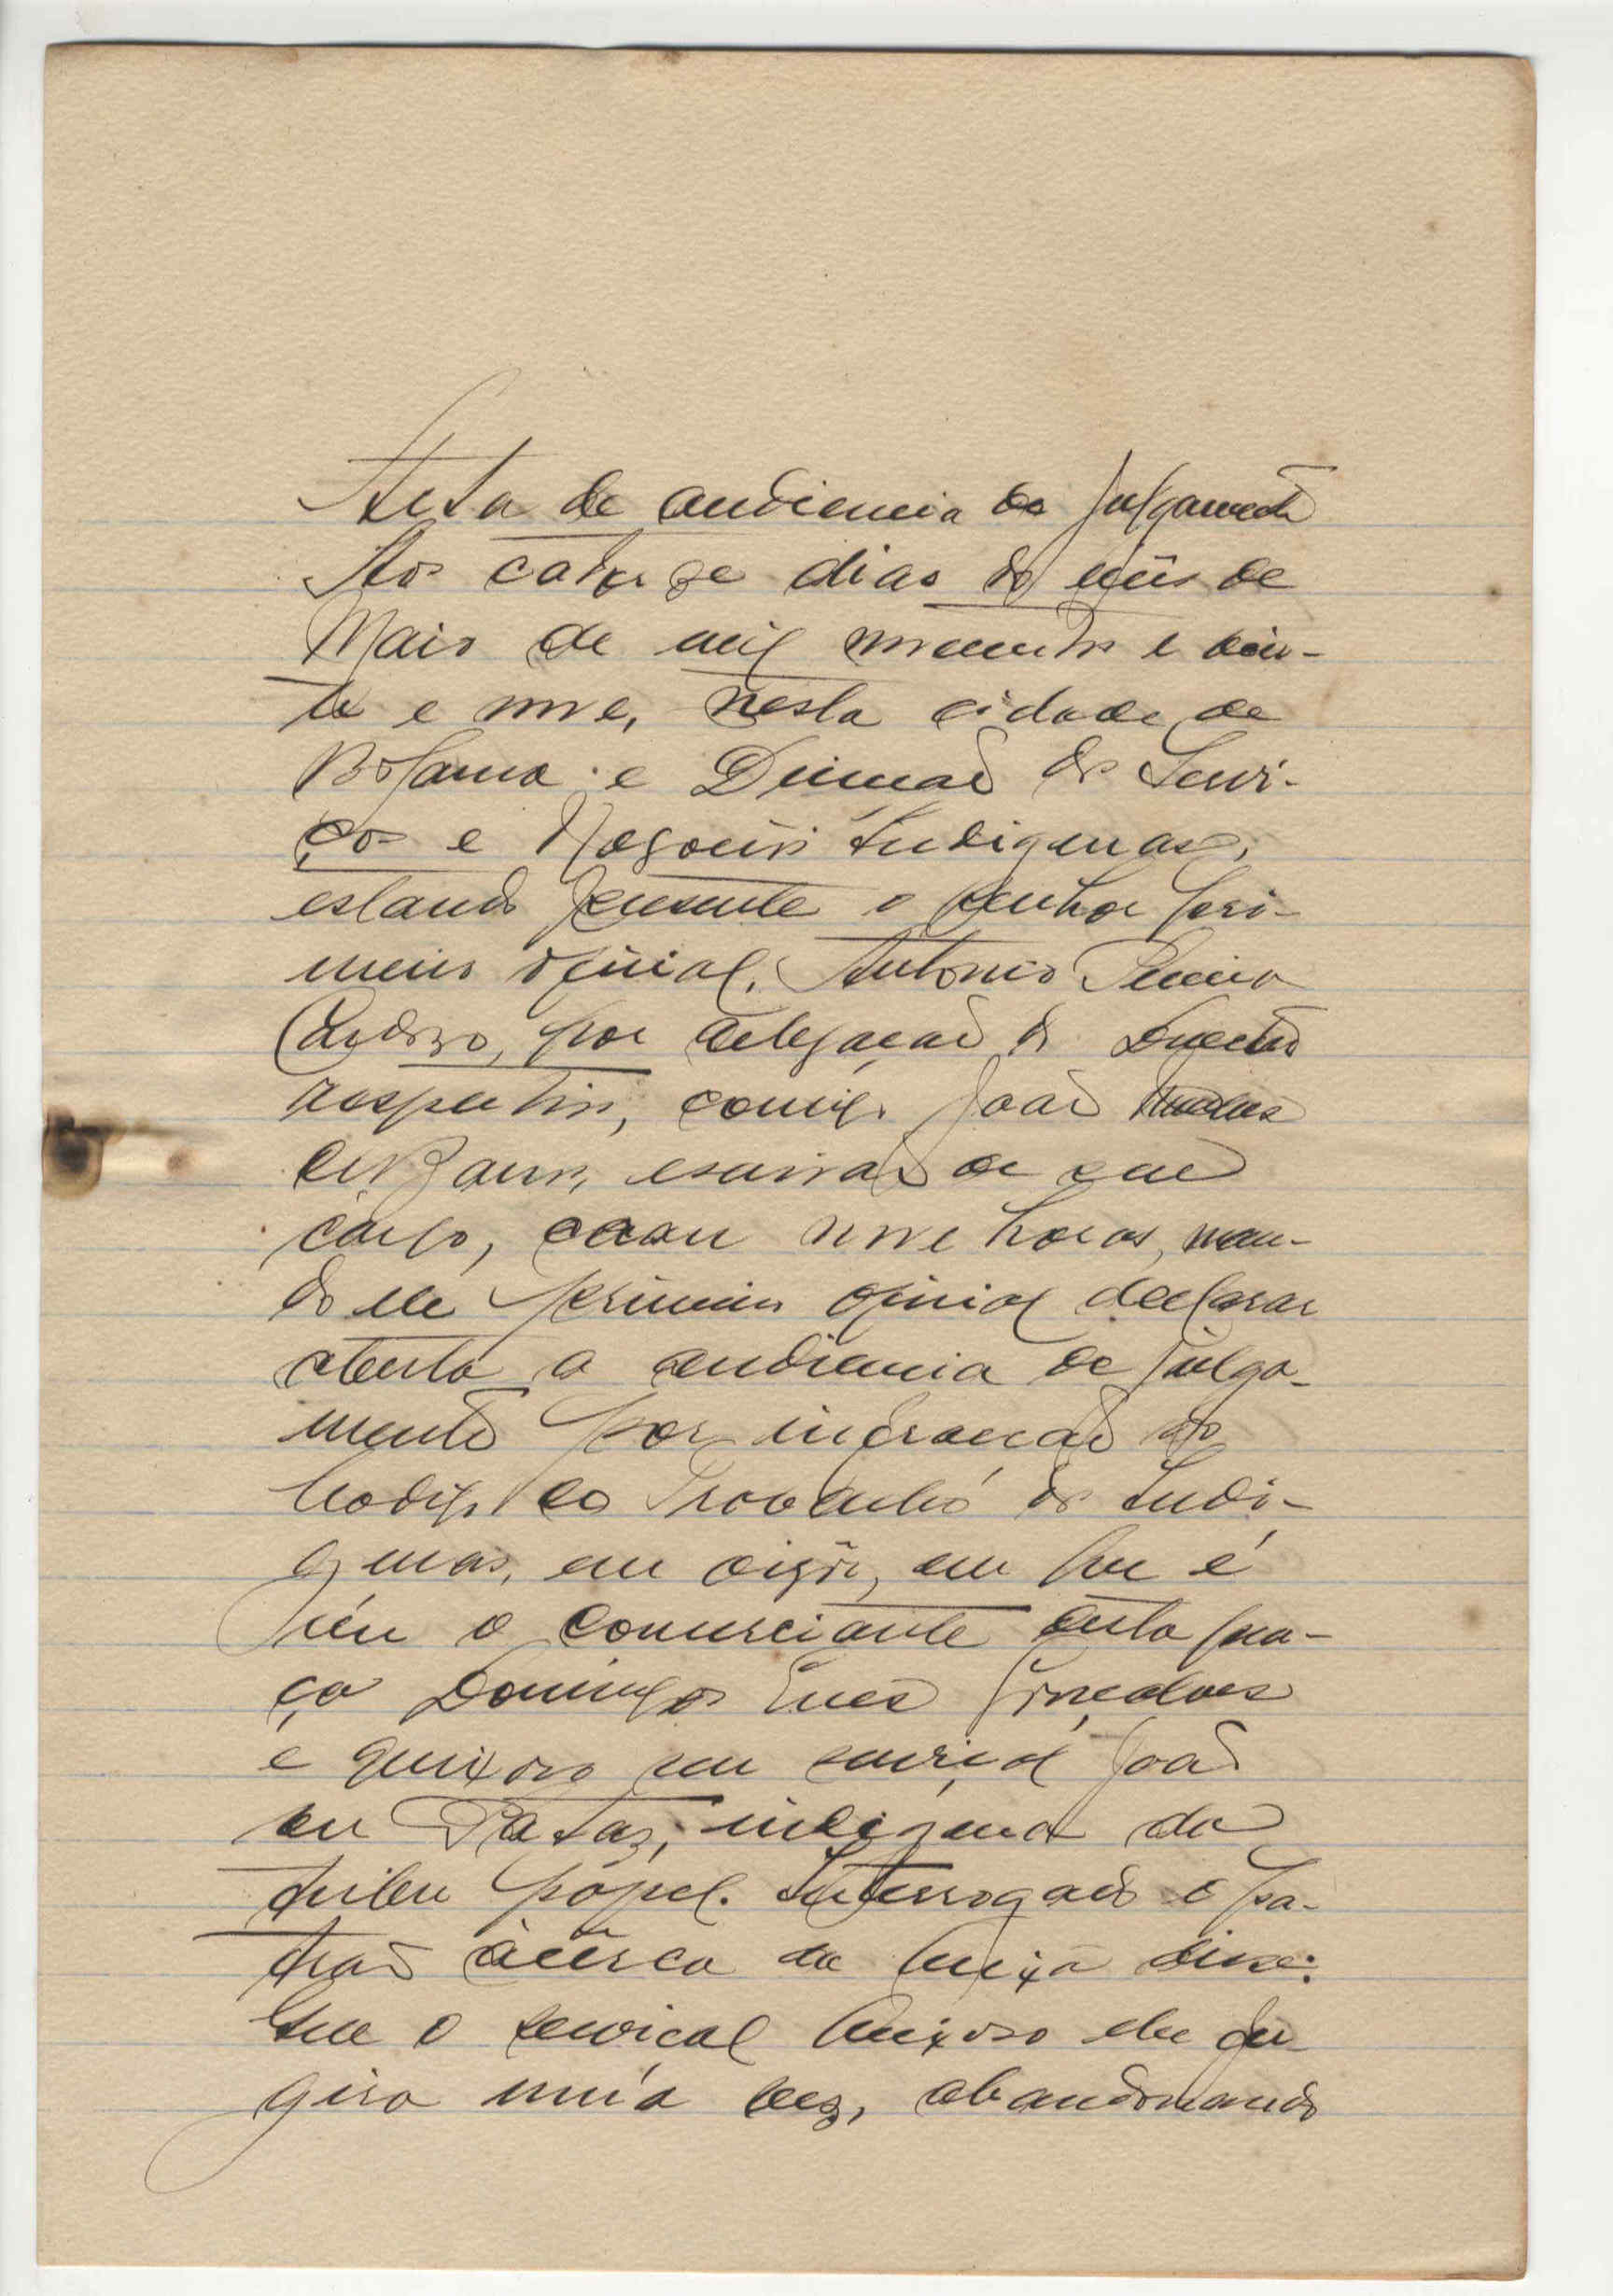 Acta de audiencia de julgamento
Aos catorze dias do mês de
Maio de mil novecentos e vin-
te e nove, nesta cidade de
Bolama e Direcção dos Servi-
ços e Negocios Indigenas,
estando presente o senhor pri-
meiro oficial, Antonio Pereira
Cardozo, por delegação do Director
respectivo, comigo João
de Barros, escrivão de seu
cargo, nove horas, man-
dou ele primeiro oficial declarar
aberta a audiencia de julga-
mento por infracção do
Codigo do Trabalho dos Indi-
genas, em vigor, em que é
réu o comerciante desta pra-
ça Domingos Gonçalves
e queixoso seu serviçal João
ou indigena da
tribu papel. Interrogado o pa-
trão àcêrca da queixa disse:
Que o serviçal queixoso ele fu-
gira uma vez, abandonando